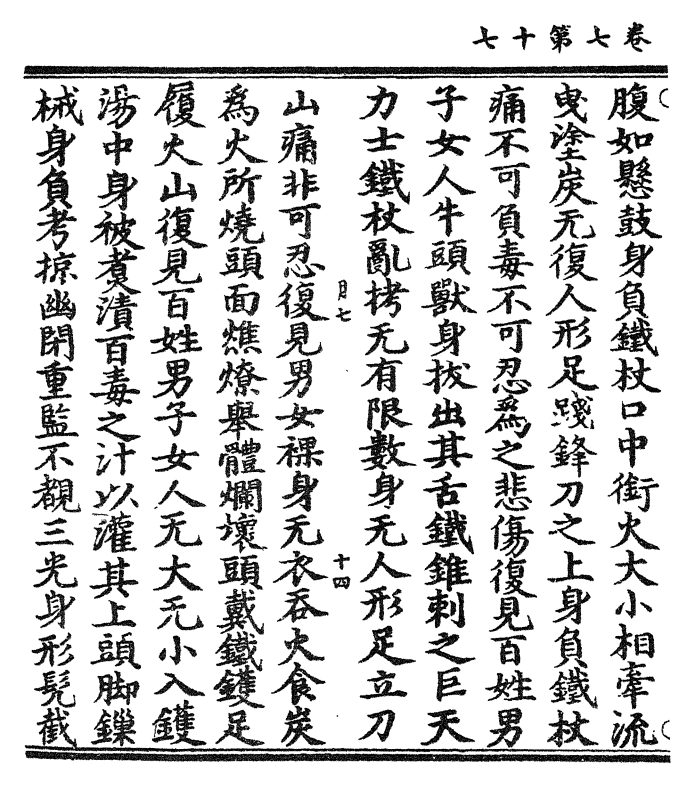 卷七第十七
腹如懸鼓身負鐵杖口中銜火大小相牽流
曳塗炭无復人形足踐鋒刀之上身負鐵杖
痛不可負毒不可忍爲之悲傷復見百姓男
子女人牛頭獸身拔出其舌鐵錐刺之巨天
力士鐵杖亂拷无有限數身无人形足立刀
月七
十四
山痛非可忍復見男女裸身无衣吞火食炭
爲火所燒頭面燋燎舉體爛壞頭戴鐵鑊足
履火山復見百姓男子女人无大无小入鑊
湯中身被煑漬百毒之汁以灌其上頭脚鏁
械身負考掠幽閉重監不覩三光身形髡截